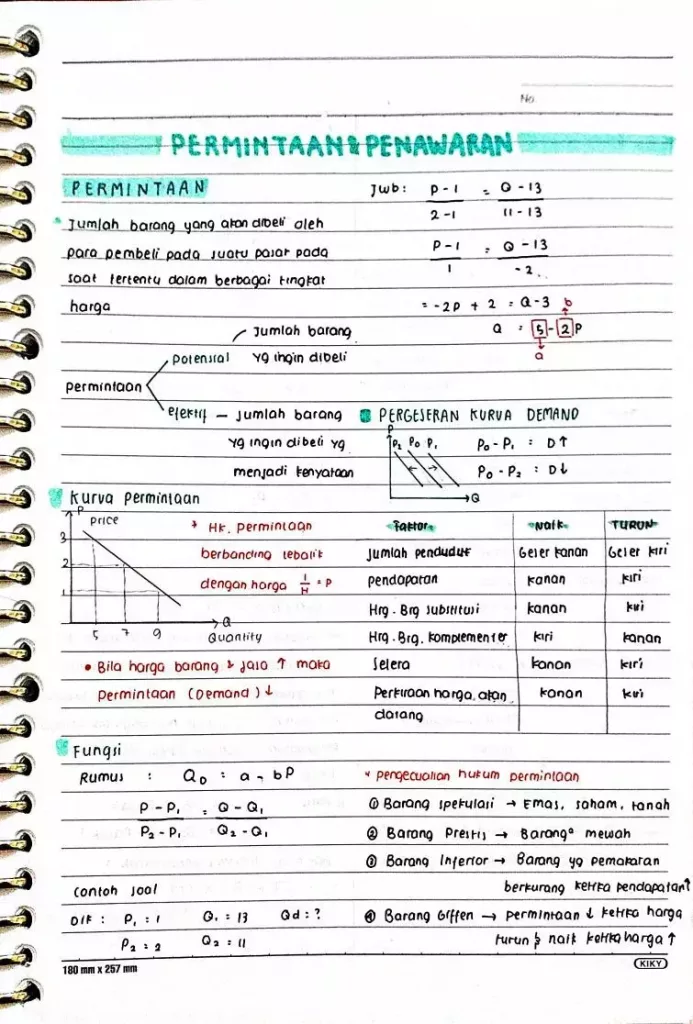 No
PERMINTAAN & PENAWARAN
PERMINTAAN
Jumlah barang yang akan dibeli oleh
para pembeli pada suatu pasar pada
saat tertentu dalam berbagai tingkat
harga
permintaan
potensial
Jumlah barang
yg ingin dibeli
efektif — jumlah barang
yg ingin dibeli yg
menjadi kenyataan
Kurva permintaan
P
price
3
2
1
5 7 9
Q
Quantity
* Hk. permintaan
berbanding terbalik
dengan harga 1/H = P
• Bila harga barang & jasa ↑ maka
permintaan (Demand) ↓
Fungsi
Rumus : QD : a - bP
P - P1 = Q - Q1
P2 - P1 Q2 - Q1
Contoh soal
Dik : P1 : 1 Q1 : 13 Qd : ?
P2 = 2 Q2 = 11
Jwb : P - 1 = Q - 13
2 - 1 11 - 13
P - 1 = Q - 13
1 -2
= -2P + 2 = Q - 3 b
Q = 5 - 2P
a
PERGESERAN KURVA DEMAND
P
P2 P0 P1
Q
P0 - P1 : D↑
P0 - P2 : D↓
Faktor NAIK TURUN
Jumlah penduduk Geser kanan Geser kiri
pendapatan kanan kiri
Hrg. Brg substitusi kanan kiri
Hrg. Brg. komplementer kiri kanan
Selera kanan kiri
Perkiraan harga akan kanan kiri
datang
* pengecualian hukum permintaan
① Barang spekulasi → Emas, saham, tanah
② Barang Prestis → Barang² mewah
③ Barang Inferior → Barang yg pemakaran
berkurang ketika pendapatan↑
④ Barang Giffen → permintaan ↓ ketika harga
turun & naik ketika harga ↑
180 mm x 257 mm
KIKY